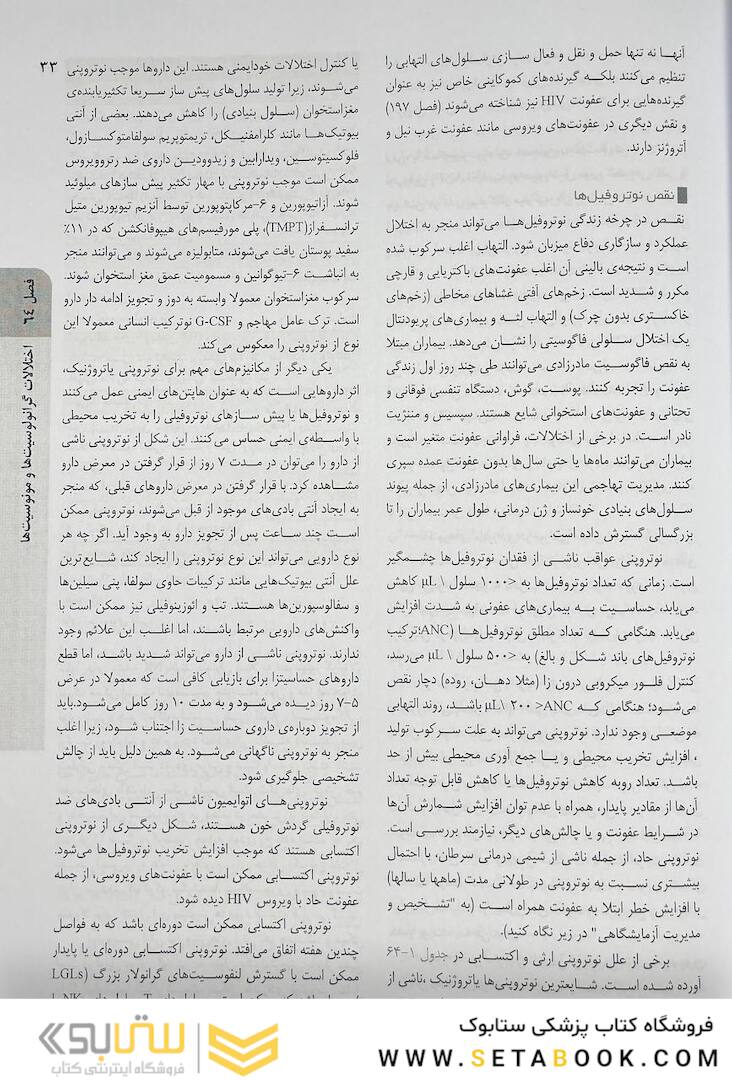 آنها نه تنها حمل و نقل و فعال سازی سلول‌های التهابی را
تنظیم می‌کنند بلکه گیرنده‌های کموکاینی خاص نیز به عنوان
گیرنده‌هایی برای عفونت HIV نیز شناخته می‌شوند (فصل ۱۹۷)
و نقش دیگری در عفونت‌های ویروسی مانند عفونت غرب نیل و
آتروژنز دارند.
نقص نوتروفیل‌ها
نقص در چرخه زندگی نوتروفیل‌ها می‌تواند منجر به اختلال
عملکرد و سازگاری دفاع میزبان شود. التهاب اغلب سرکوب شده
است و نتیجه‌ی بالینی آن اغلب عفونت‌های باکتریایی و قارچی
مکرر و شدید است. زخم‌های آفتی غشاهای مخاطی (زخم‌های
خاکستری بدون چرک) و التهاب لثه و بیماری‌های پریودنتال
یک اختلال سلولی فاگوسیتی را نشان می‌دهد. بیماران مبتلا
به نقص فاگوسیت مادرزادی می‌توانند طی چند روز اول زندگی
عفونت را تجربه کنند. پوست، گوش، دستگاه تنفسی فوقانی و
تحتانی و عفونت‌های استخوانی شایع هستند. سپسیس و مننژیت
نادر است. در برخی از اختلالات، فراوانی عفونت متغیر است و
بیماران می‌توانند ماه‌ها یا حتی سال‌ها بدون عفونت عمده سپری
کنند. مدیریت تهاجمی این بیماری‌های مادرزادی، از جمله پیوند
سلول‌های بنیادی خونساز و ژن درمانی، طول عمر بیماران را تا
بزرگسالی گسترش داده است.
نوتروپنی عواقب ناشی از فقدان نوتروفیل‌ها چشمگیر
است. زمانی که تعداد نوتروفیل‌ها به <۱۰۰۰ سلول \ µL کاهش
می‌یابد، حساسیت به بیماری‌های عفونی به شدت افزایش
می‌یابد. هنگامی که تعداد مطلق نوتروفیل‌ها (ANC؛ترکیب
نوتروفیل‌های باند شکل و بالغ) به <۵۰۰ سلول \ µL می‌رسد،
کنترل فلور میکروبی درون زا (مثلا دهان، روده) دچار نقص
می‌شود؛ هنگامی که ANC< ۲۰۰ \µL باشد، روند التهابی
موضعی وجود ندارد. نوتروپنی می‌تواند به علت سرکوب تولید
، افزایش تخریب محیطی و یا جمع آوری محیطی بیش از حد
باشد. تعداد روبه کاهش نوتروفیل‌ها یا کاهش قابل توجه تعداد
آن‌ها از مقادیر پایدار، همراه با عدم توان افزایش شمارش آن‌ها
در شرایط عفونت و یا چالش‌های دیگر، نیازمند بررسی است.
نوتروپنی حاد، از جمله ناشی از شیمی درمانی سرطان، با احتمال
بیشتری نسبت به نوتروپنی در طولانی مدت (ماهها یا سالها)
با افزایش خطر ابتلا به عفونت همراه است (به "تشخیص و
مدیریت آزمایشگاهی" در زیر نگاه کنید).
برخی از علل نوتروپنی ارثی و اکتسابی در جدول ۱-۶۴
آورده شده است. شایعترین نوتروپنی‌ها یاتروژنیک ،ناشی از
یا کنترل اختلالات خودایمنی هستند. این داروها موجب نوتروپنی
می‌شوند، زیرا تولید سلول‌های پیش ساز سریعا تکثیریابنده‌ی
مغزاستخوان (سلول بنیادی) را کاهش می‌دهند. بعضی از آنتی
بیوتیک‌ها مانند کلرامفنیکل، تریمتوپریم سولفامتوکسازول،
فلوکسیتوسین، ویدارابین و زیدوودین داروی ضد رتروویروس
ممکن است موجب نوتروپنی با مهار تکثیر پیش سازهای میلوئید
شوند. آزاتیوپرین و ۶-مرکاپتوپورین توسط آنزیم تیوپورین متیل
ترانسفراز(TMPT)، پلی مورفیسم‌های هیپوفانکشن که در ۱۱٪
سفید پوستان یافت می‌شوند، متابولیزه می‌شوند و می‌توانند منجر
به انباشت ۶-تیوگوانین و مسمومیت عمق مغز استخوان شوند.
سرکوب مغزاستخوان معمولا وابسته به دوز و تجویز ادامه دار دارو
است. ترک عامل مهاجم و G-CSF نوترکیب انسانی معمولا این
نوع از نوتروپنی را معکوس می‌کند.
یکی دیگر از مکانیزم‌های مهم برای نوتروپنی یاتروژنیک،
اثر داروهایی است که به عنوان هاپتن‌های ایمنی عمل می‌کنند
و نوتروفیل‌ها یا پیش سازهای نوتروفیلی را به تخریب محیطی
با واسطه‌ی ایمنی حساس می‌کنند. این شکل از نوتروپنی ناشی
از دارو را می‌توان در مدت ۷ روز از قرار گرفتن در معرض دارو
مشاهده کرد. با قرار گرفتن در معرض داروهای قبلی، که منجر
به ایجاد آنتی بادی‌های موجود از قبل می‌شوند، نوتروپنی ممکن
است چند ساعت پس از تجویز دارو به وجود آید. اگر چه هر
نوع دارویی می‌تواند این نوع نوتروپنی را ایجاد کند، شایع‌ترین
علل آنتی بیوتیک‌هایی مانند ترکیبات حاوی سولفا، پنی سیلین‌ها
و سفالوسپورین‌ها هستند. تب و ائوزینوفیلی نیز ممکن است با
واکنش‌های دارویی مرتبط باشند، اما اغلب این علائم وجود
ندارند. نوتروپنی ناشی از دارو می‌تواند شدید باشد، اما قطع
داروهای حساسیتزا برای بازیابی کافی است که معمولا در عرض
۵-۷ روز دیده می‌شود و به مدت ۱۰ روز کامل می‌شود.باید
از تجویز دوباره‌ی داروی حساسیت زا اجتناب شود، زیرا اغلب
منجر به نوتروپنی ناگهانی می‌شود. به همین دلیل باید از چالش
تشخیصی جلوگیری شود.
نوتروپنی‌های اتوایمیون ناشی از آنتی بادی‌های ضد
نوتروفیلی گردش خون هستند، شکل دیگری از نوتروپنی
اکتسابی هستند که موجب افزایش تخریب نوتروفیل‌ها می‌شود.
نوتروپنی اکتسابی ممکن است با عفونت‌های ویروسی، از جمله
عفونت حاد با ویروس HIV دیده شود.
نوتروپنی اکتسابی ممکن است دوره‌ای باشد که به فواصل
چندین هفته اتفاق می‌افتد. نوتروپنی اکتسابی دوره‌ای یا پایدار
ممکن است با گسترش لنفوسیت‌های گرانولار بزرگ (LGLs
۳۳
فصل ۶۴
اختلالات گرانولوسیت‌ها و مونوسیت‌ها
فروشگاه کتاب پزشکی ستابوک
WWW.SETABOOK.COM
ستابوک
فروشگاه اینترنتی کتاب